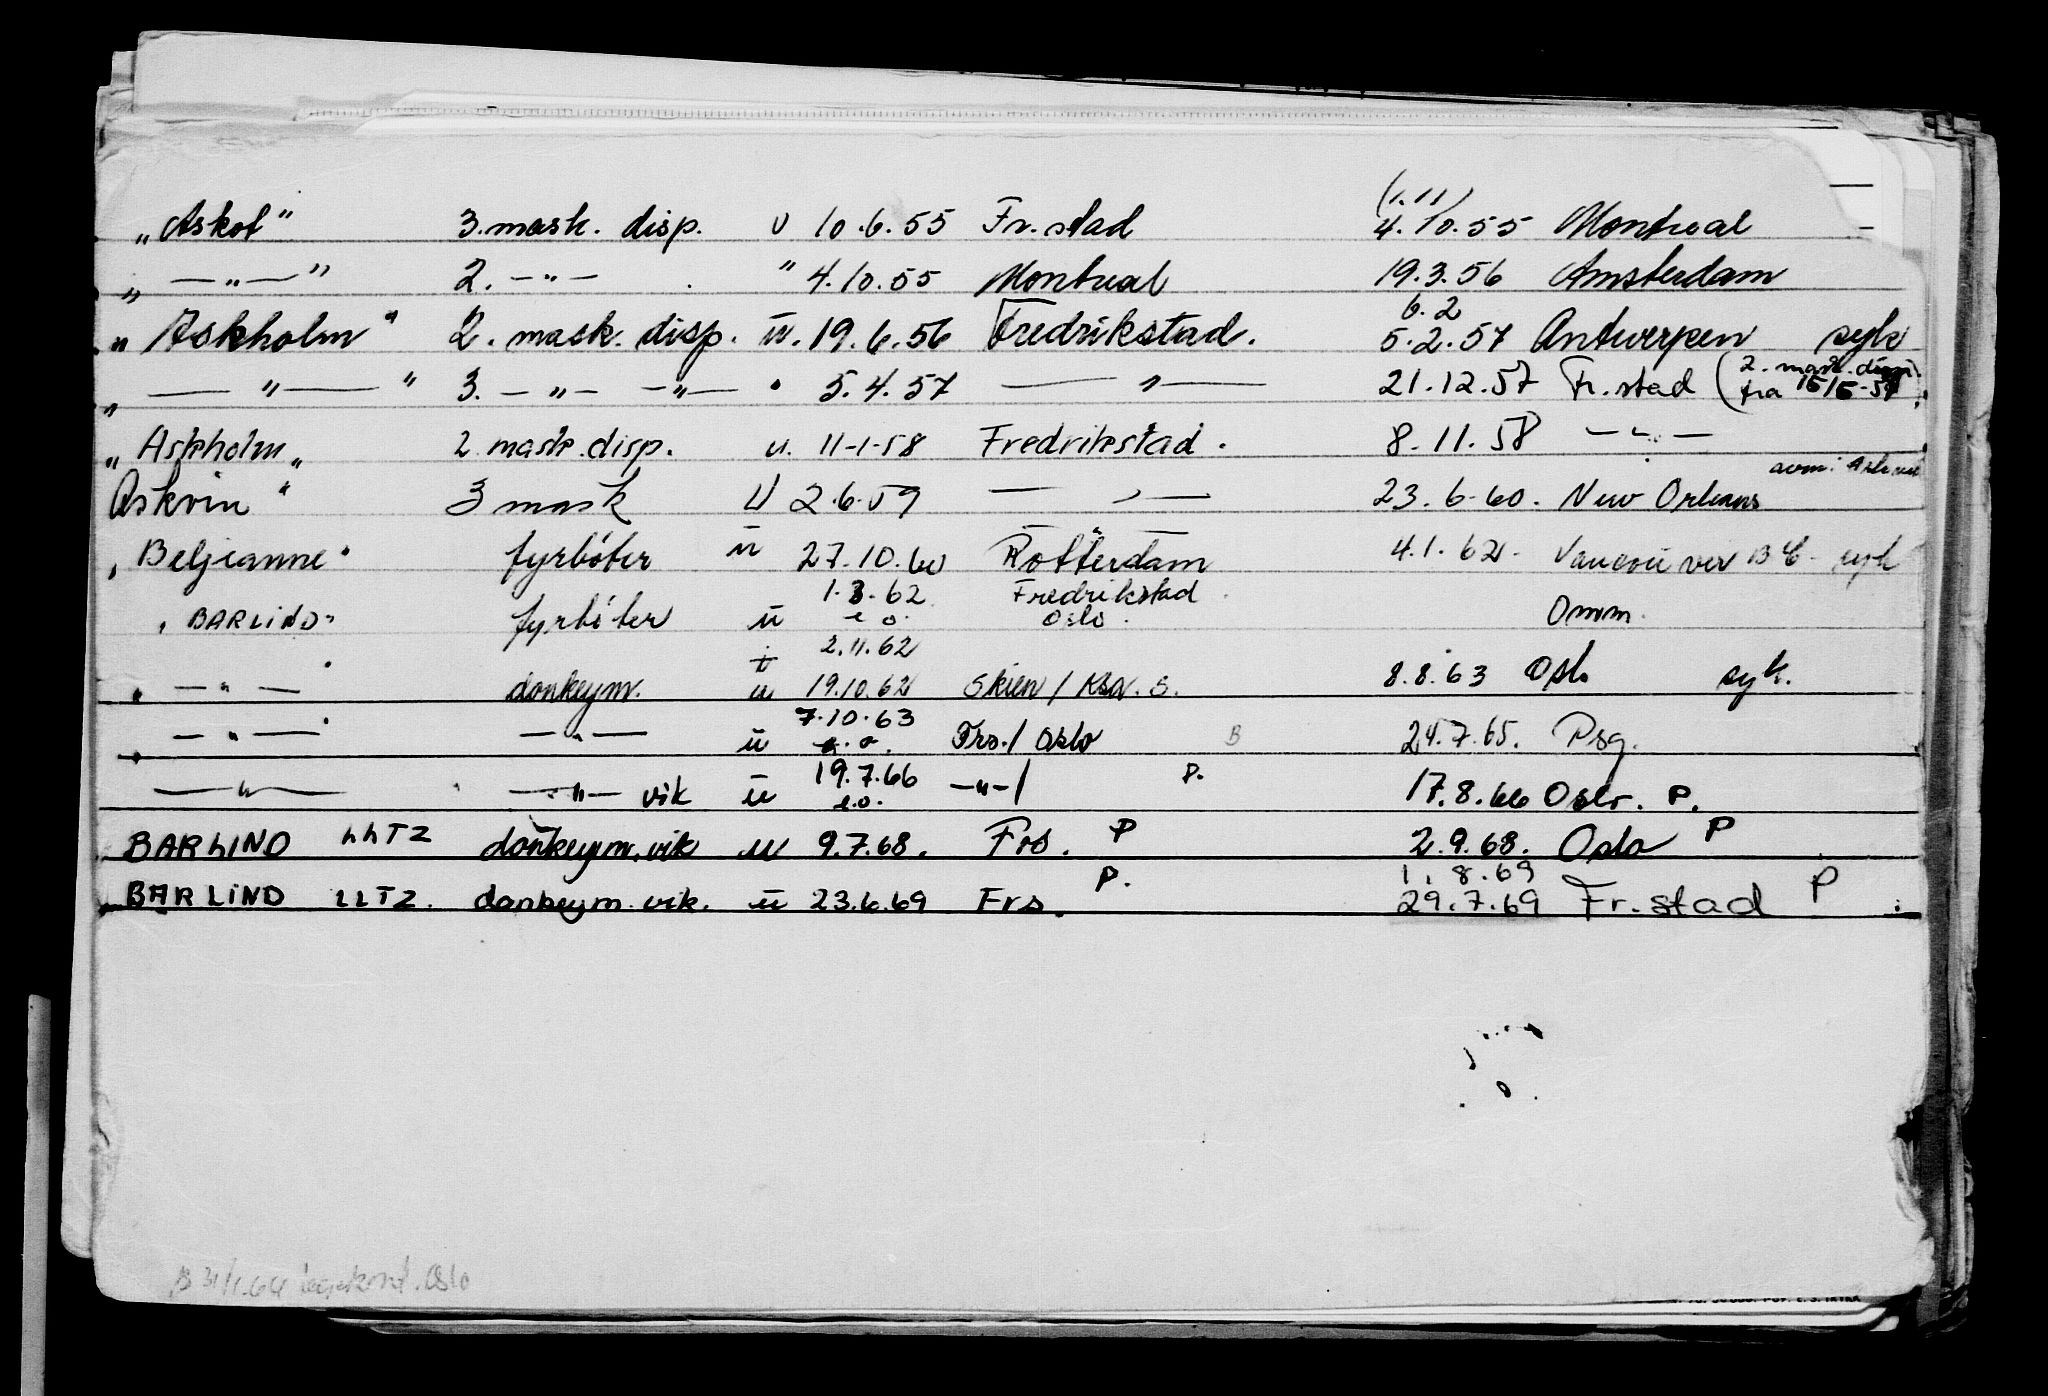 (1.11)
„Askot" 3. mask. disp. u 10.6.55 Fr.stad 4.10.55 Montreal
„ — „ — " 2. — „ — " 4.10.55 Montreal 19.3.56 Amsterdam
6.2
„Askholm" 2. mask. disp. ü. 19.6.56 Fredrikstad. 5.2.57 Antwerpen syk
„ — " — " 3. — " — — " — " 5.4.57 — " — 21.12.57 Fr.stad (2. mask. disp. fra 15/5-57)
„Askholm„ 2. mask. disp. u. 11-1-58 Fredrikstad. 8.11.58 — " —
Askvin" 3 mask U 2.6.59 — " — 23.6-60. New Orleans
„Beljeanne" fyrbøter ü 27.10.60 Rotterdam 4.1.62- Vancouver BC- syk
1.3.62 Fredrikstad
„BARLIND" fyrbøter ü e.o. Oslo. Omm.
2.11.62
„ — " — " donkeym. u 19.10.62 Skien / 8.8.63 Oslo syk.
7.10.63
„ — " — " — " — ü e.o. Frs./ Oslo B 24.7.65. Psg.
19.7.66
— " — — " — vik ü e.o. — " — / P. 17.8.66 Oslo. P.
BARLIND LLTZ donkeym. vik u 9.7.68. Frs. P 2.9.68. Oslo P
1.8.69
BARLIND LLTZ. donkeym. vik. ü 23.6.69 Frs. P. 29.7.69 Fr.stad P
Oslo